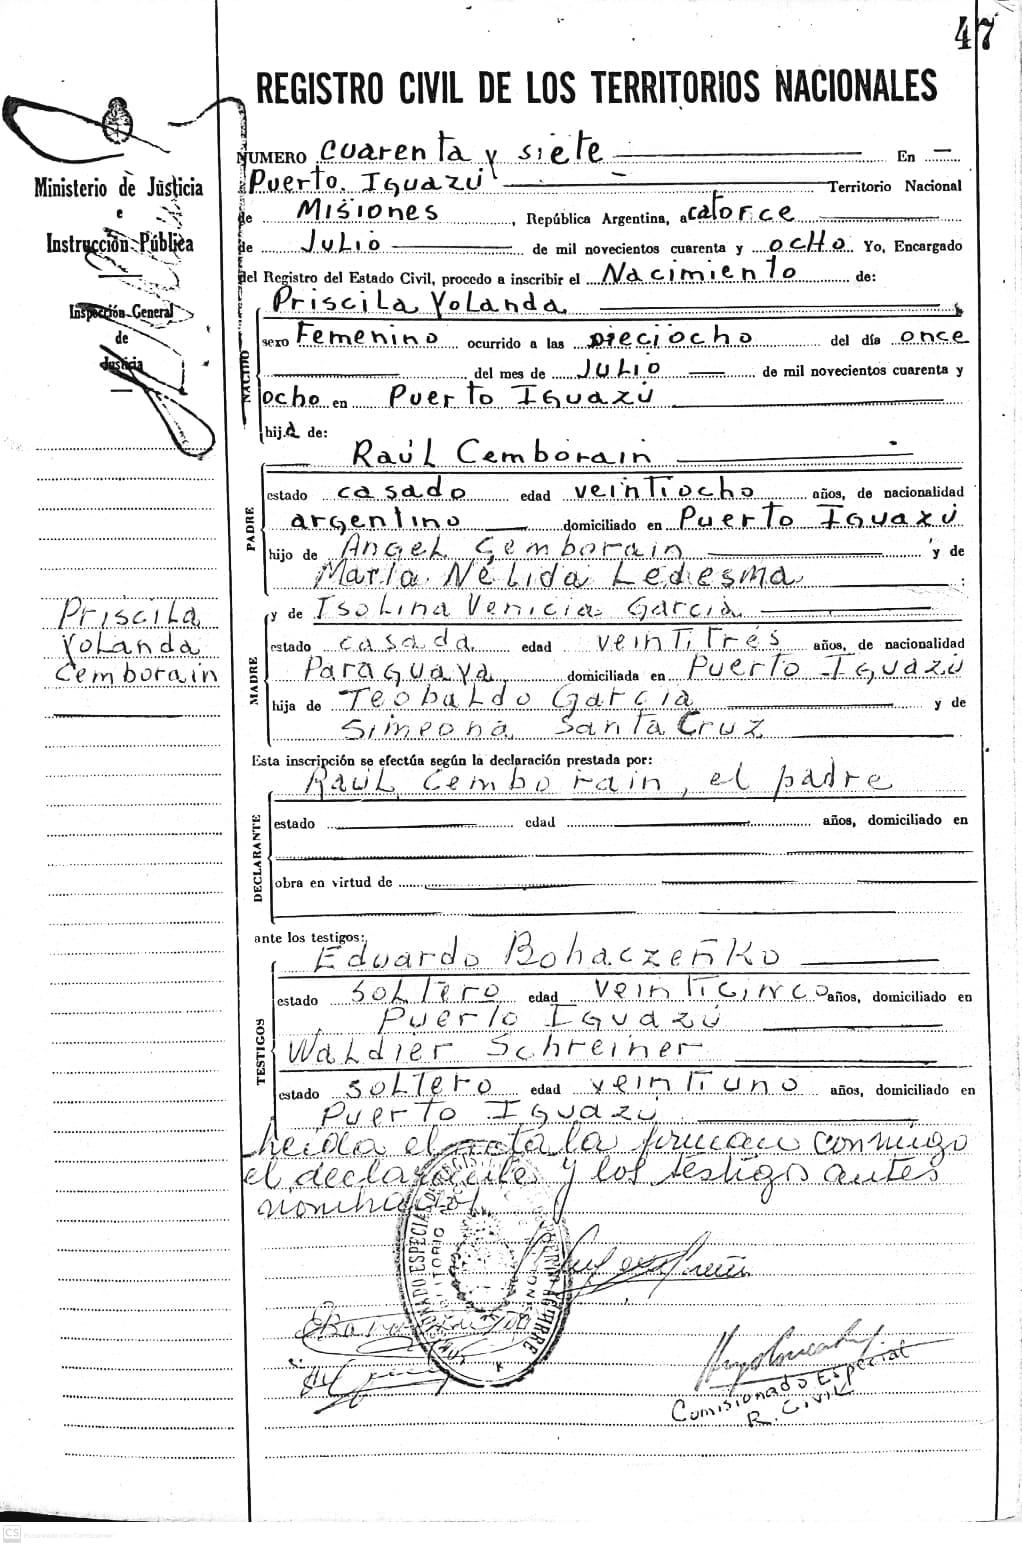 47
REGISTRO CIVIL DE LOS TERRITORIOS NACIONALES
Ministerio de Justicia
e
Instrucción Pública
Inspección General
de
Justicia
NUMERO cuarenta y siete En
Puerto Iguazú Territorio Nacional
de Misiones, República Argentina, a catorce
de Julio de mil novecientos cuarenta y ocho Yo, Encargado
del Registro del Estado Civil, procedo a inscribir el Nacimiento de:
NACIDO
Priscila Yolanda
sexo Femenino ocurrido a las Dieciocho del día once
del mes de Julio de mil novecientos cuarenta y
ocho en Puerto Iguazú
hija de:
PADRE
Raúl Cemborain
estado casado edad veintiocho años, de nacionalidad
argentino domiciliado en Puerto Iguazú
hijo de Angel Cemborain y de
María Nélida Ledesma
Priscila
Yolanda
Cemborain
MADRE
y de Isolina Venicia García
estado casada edad veintitrés años, de nacionalidad
Paraguaya domiciliada en Puerto Iguazú
hija de Teobaldo García y de
Simeona Santa Cruz
Esta inscripción se efectúa según la declaración prestada por:
Raúl Cemborain, el padre
DECLARANTE
estado edad años, domiciliado en
obra en virtud de
ante los testigos:
TESTIGOS
Eduardo Bohaczeñko
estado soltero edad veinticinco años, domiciliado en
Puerto Iguazú
Waldier Schreiner
estado soltero edad veintiuno años, domiciliado en
Puerto Iguazú
Leída el acta la firman conmigo
el declarante y los testigos antes
Comisionado Especial
R. Civil
CS